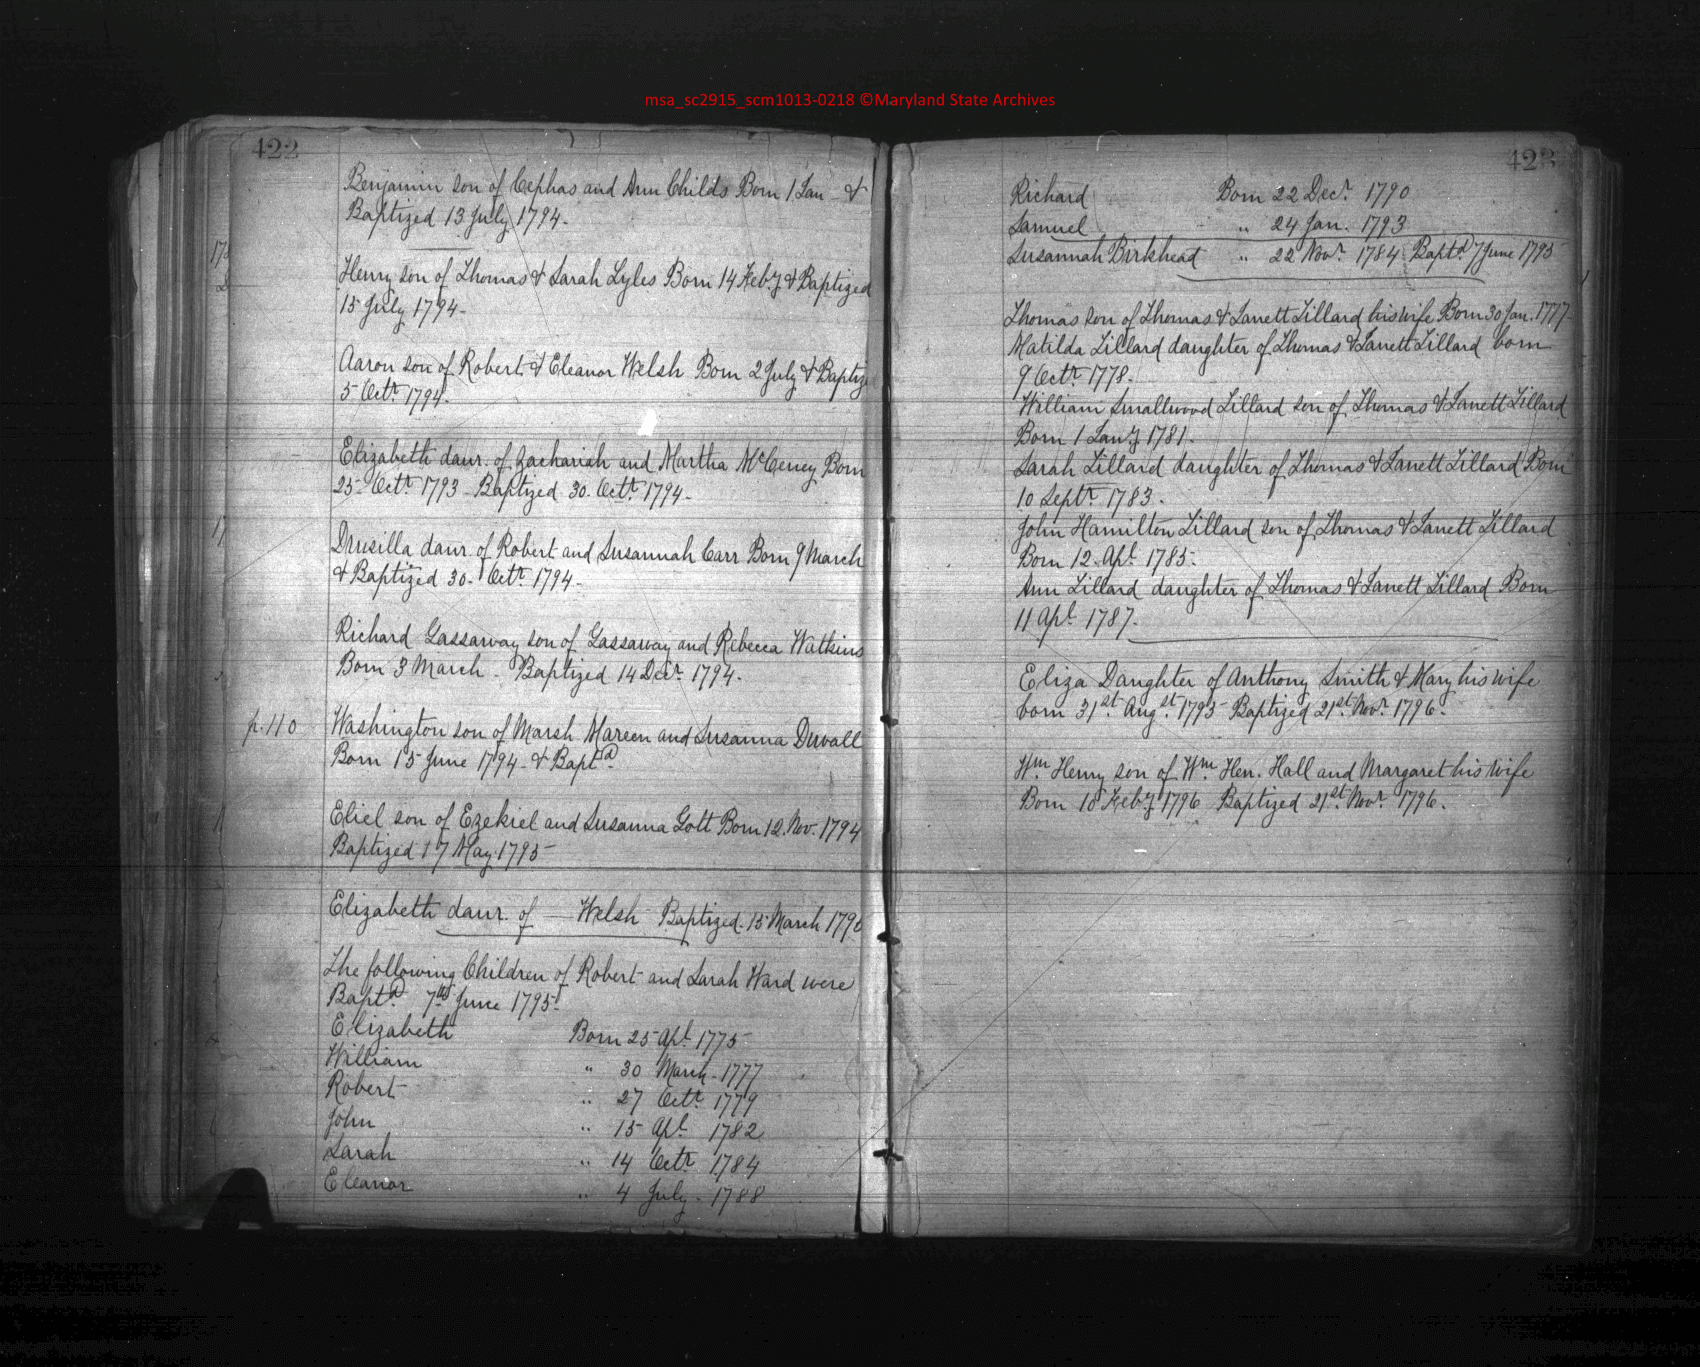 msa_sc2915_scm1013-0218 ©Maryland State Archives
422
Benjamin son of Cephas and Ann Childs Born 1 Jan - &
Baptized 13 July 1794.
Henry son of Thomas & Sarah Lyles Born 14 Feby & Baptized
15 July 1794.
Aaron son of Robert & Eleanor Welsh Born 2 July & Baptiz
5 Octr. 1794.
Elizabeth daur. of Zachariah and Martha McCeney Born
25 Octr. 1793 - Baptized 30. Octr. 1794.
Drusilla daur. of Robert and Susannah Carr Born 9 March
& Baptized 30. Octr. 1794.
Richard Gassaway son of Gassaway and Rebecca Watkins
Born 3 March - Baptized 14 Decr. 1794.
p.110
Washington son of Marsh Mareen and Susanna Duvall
Born 15 June 1794 - & Baptd.
Eliel son of Ezekiel and Susanna Gott Born 12. Nov. 1794
Baptized 17 May 1795
Elizabeth daur. of — Welsh Baptized. 15 March 179
The following Children of Robert and Sarah Ward were
Baptd. 7th June 1795.
Elizabeth Born 25 Apl. 1775
William " 30 March 1777
Robert " 27 Octr. 1779
John " 15 Apl. 1782
Sarah " 14 Octr. 1784
Eleanor " 4 July - 1788
423
Richard Born 22 Decr. 1790
Samuel " 24 Jan. 1793
Susannah Birkhead " 22 Novr. 1784 Baptd. 7 June 1795
Thomas son of Thomas & Janett Lillard his wife Born 30 Jan. 1777
Matilda Lillard daughter of Thomas & Janett Lillard born
9 Octr. 1778.
William Smallwood Lillard son of Thomas & Janett Lillard
Born 1 Jany. 1781.
Sarah Lillard daughter of Thomas & Janett Lillard Born
10 Septr. 1783.
John Hamilton Lillard son of Thomas & Janett Lillard
Born 12. Apl. 1785.
Ann Lillard daughter of Thomas & Janett Lillard Born
11 Apl. 1787.
Eliza Daughter of Anthony Smith & Mary his wife
born 31st. Augst. 1795 Baptized 21st. Novr. 1796.
Wm. Henry son of Wm. Hen. Hall and Margaret his wife
Born 10 Feby 1796 Baptized 21st. Novr. 1796.